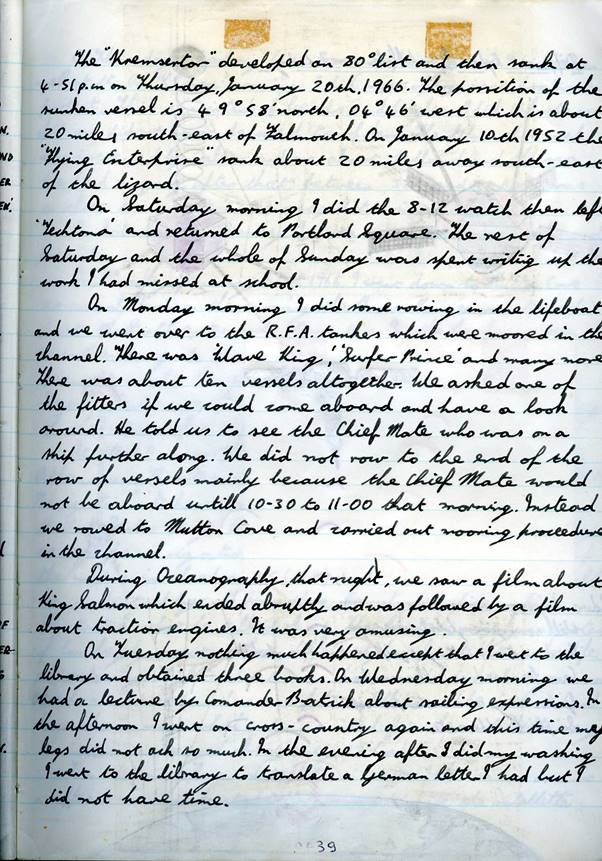 The "Kremsertor" developed an 80° list and then sank at
4-51 p.m on Thursday, January 20th, 1966. The possition of the
sunken vessel is 49° 58' north, 04° 46' west which is about
20 miles south-east of Falmouth. On January 10th 1952 the
"Flying Enterprise" sank about 20 miles away south-east
of the lizard.
On Saturday morning I did the 8-12 watch then left
'Tectona' and returned to Portland Square. The rest of
Saturday and the whole of Sunday was spent writig up the
work I had missed at school.
On Monday morning I did some rowing in the lifeboat
and we went over to the R.F.A. tankes which were moored in the
channel. There was 'Wave King', 'Surfer Prince' and many more
There was about ten vessels altogether. We asked one of
the fitters if we could come aboard and have a look
around. He told us to see the Chief Mate who was on a
ship further along. We did not row to the end of the
row of vessels mainly because the Chief Mate would
not be aboard untill 10-30 to 11-00 that morning. Instead
we rowed to Mutton Cove and carried out mooring proceedure
in the channel.
During Oceanography, that night, we saw a film about
King Salmon which ended abruptly and was followed by a film
about traction engines. It was very amusing.
On Tuesday nothing much happened except that I went to the
library and obtained three books. On Wednesday morning we
had a lecture by Comander Batick about sailing expressions. In
the afternoon I went on cross-country again and this time my
legs did not ach so much. In the evening after I did my washing
I went to the library to translate a German letter I had but I
did not have time.
39